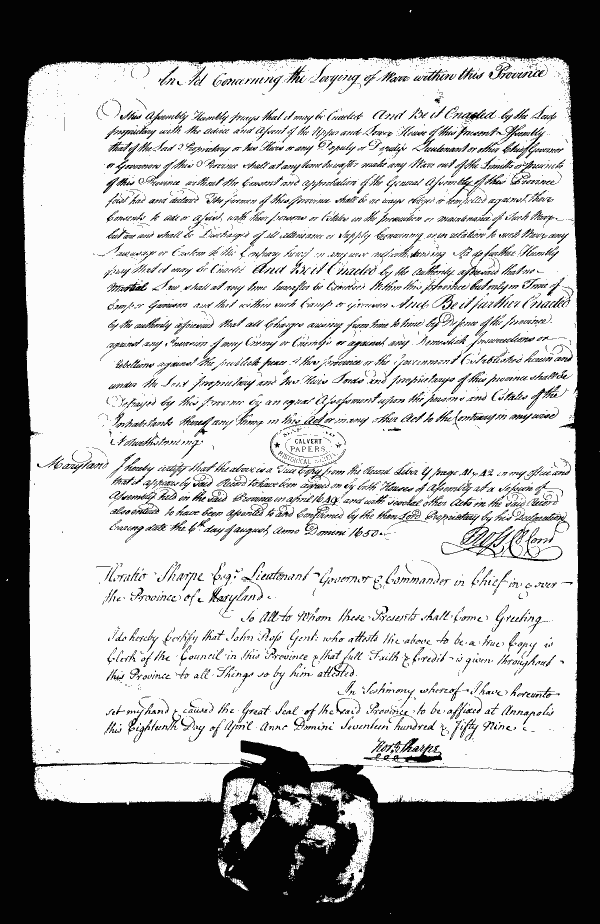 An Act Concerning the Levying of Warr within this Province
This Assembly Humbly prays that it may be Enacted And Be it Enacted by the Lord
proprietary with the advice and Assent of the Upper and Lower House of this present Assembly
that if the Lord Proprietary or his Heirs or any Deputy or Deputys Lieutenant or other Chief Governor
or Governors of this Province shall at any time hereafter make any Warr out of the Limitts or precincts
of this Province without the Consent and approbation of the General Assembly of this Province
first had and declared The freemen of this province shall be no ways obliged or compelled against their
Consents to aide or Assist with their persons or Estates in the prosecution or maintenance of Such Warr
but are and shall be Discharged of all attendance or Supply Concerning or in relation to such Warr any
Law usage or Custom to the Contrary hereof in any wise notwithstanding And do further Humbly
pray that it may be Enacted And Be it Enacted by the Authority aforesaid that no
Martial Law shall at any time hereafter be Exercised within this province but only in Time of
Camp or Garrison and that within such Camp or Garrison And Be it further Enacted
by the authority aforesaid that all Charges arising from time to time by Defence of the province
against any Invasion of any Enemy or Enemies or against any Domestick insurrections or
rebellions against the publick peace of this province or the Government Established herein and
under the Lord proprietary and his Heirs Lords and proprietarys of this province shall be
Defrayed by this province by an equal Assessment upon the persons and Estates of the
Inhabitants thereof any thing in this Act or in any other Act to the Contrary in any wise
Notwithstanding
CALVERT
PAPERS
HISTORICAL SOCIETY
Maryland
I hereby certify that the above is a True Copy from the Record Libra Y page 41 & 42 in my office and
that it appears by said Record to have been agreed on by both Houses of Assembly at a Session of
Assembly held in the said Province in april 1649 and with several other Acts in the said Record
also entered to have been assented to and Confirmed by the then Lord Proprietary by his Declaration
bearing date the 6th day of august Anno Domini 1650
J Ross Cl Con
Horatio Sharpe Esqr Lieutenant Governor & Commander in Chief in & over
the Province of Maryland
To All to Whom these Presents shall Come Greeting
I do hereby Certify that John Ross Gent: who attests the above to be a true Copy is
Clerk of the Council in this Province & that full Faith & Credit is given throughout
this Province to all Things so by him attested
In Testimony whereof I have hereunto
set my hand & caused the Great Seal of the said Province to be affixed at Annapolis
this Eighteenth Day of April Anno Domini Seventeen hundred & Fifty Nine
Horo Sharpe